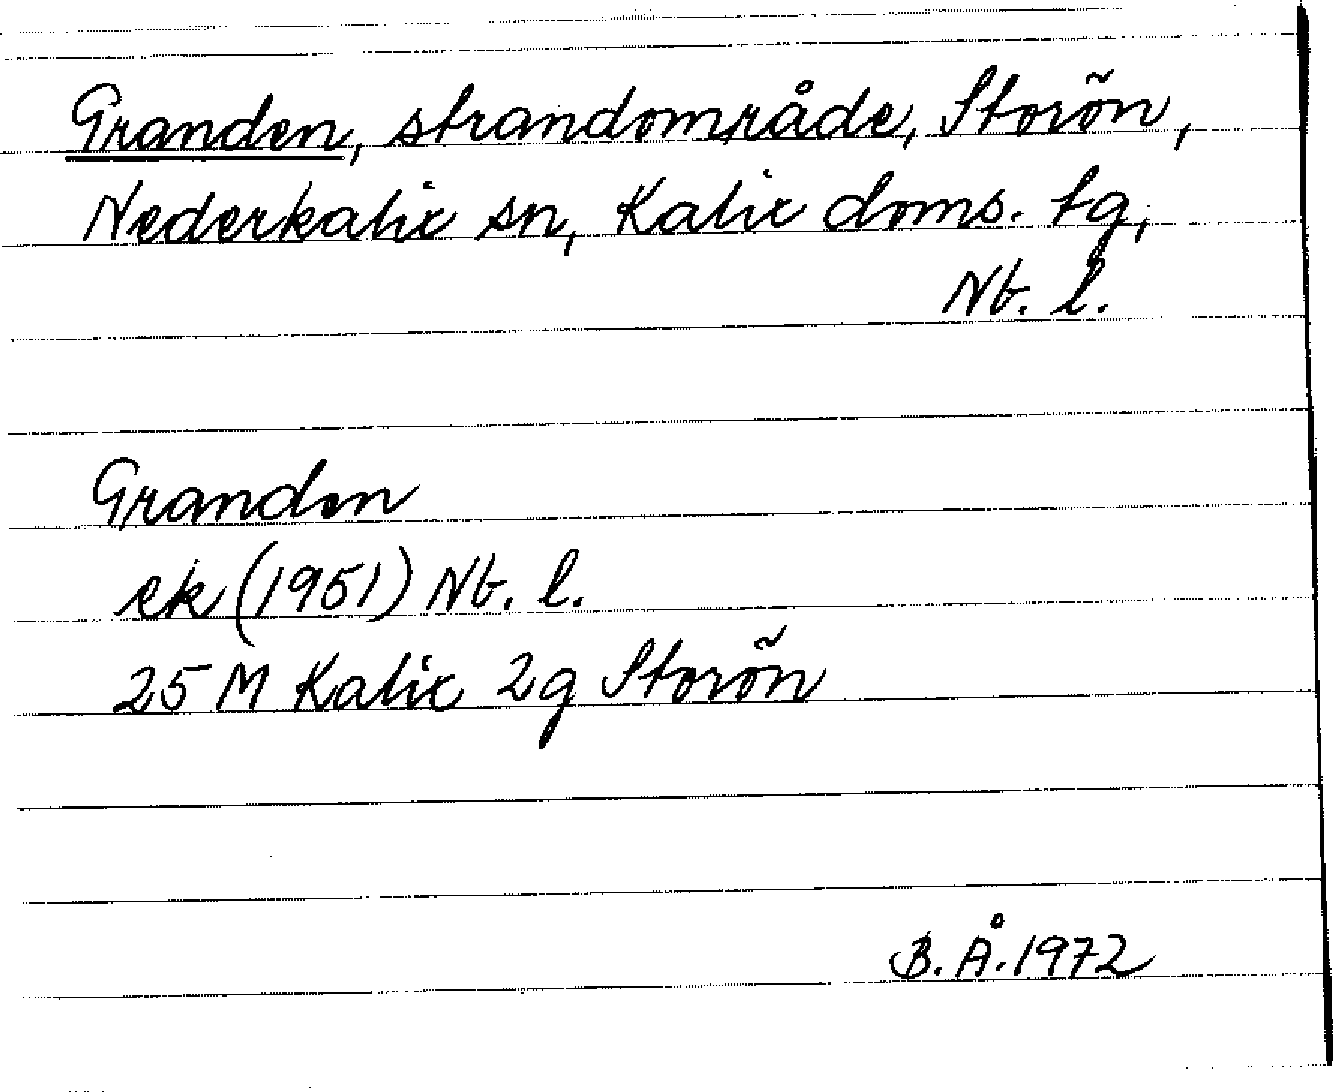 Granden, strandområde, Storön,
Nederkalix sn, Kalix doms. tg,
Nb. l.
Granden
ek (1951) Nb. l.
25 M Kalix 2g Storön
B. Å. 1972